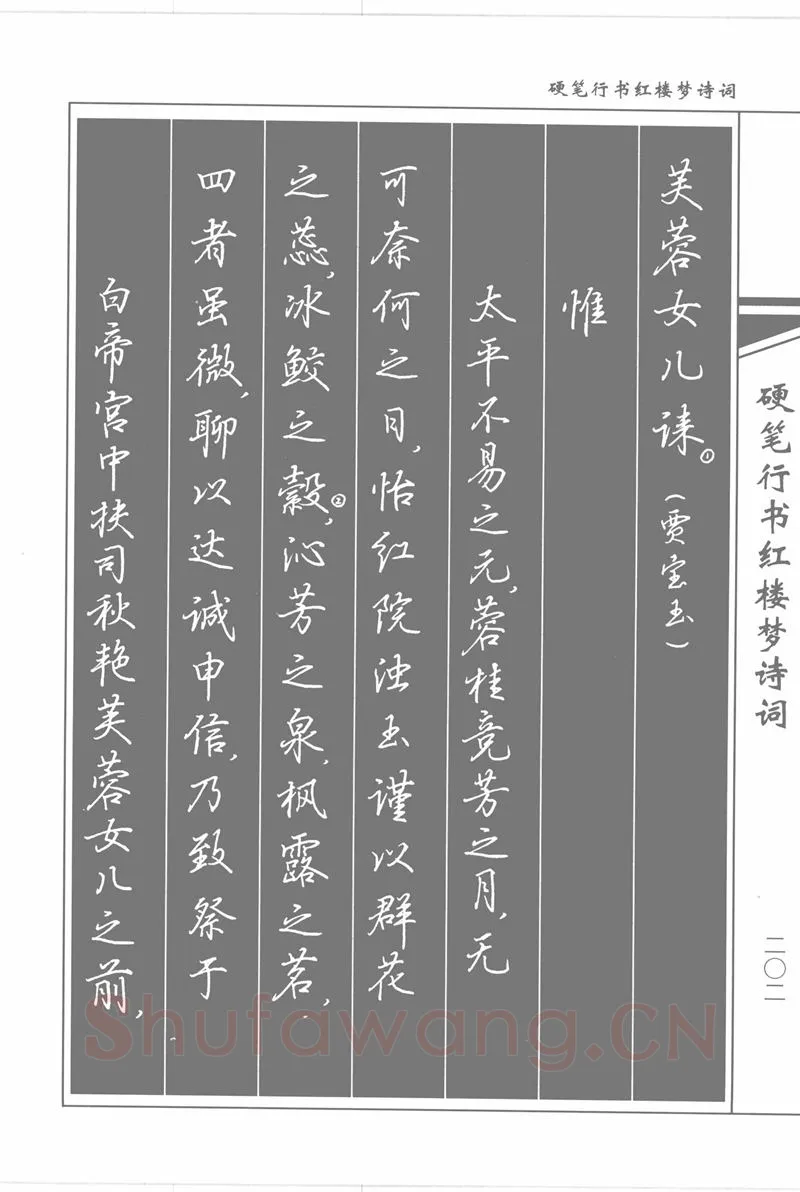 硬笔行书红楼梦诗词
芙蓉女儿诔。①（贾宝玉）
惟
太平不易之元，蓉桂竞芳之月，无
可奈何之日，怡红院浊玉谨以群花
之蕊，冰鲛之縠，②沁芳之泉，枫露之茗，
四者虽微，聊以达诚申信，乃致祭于
白帝宫中抚司秋艳芙蓉女儿之前，
硬笔行书红楼梦诗词
二〇二
Shufawang.CN